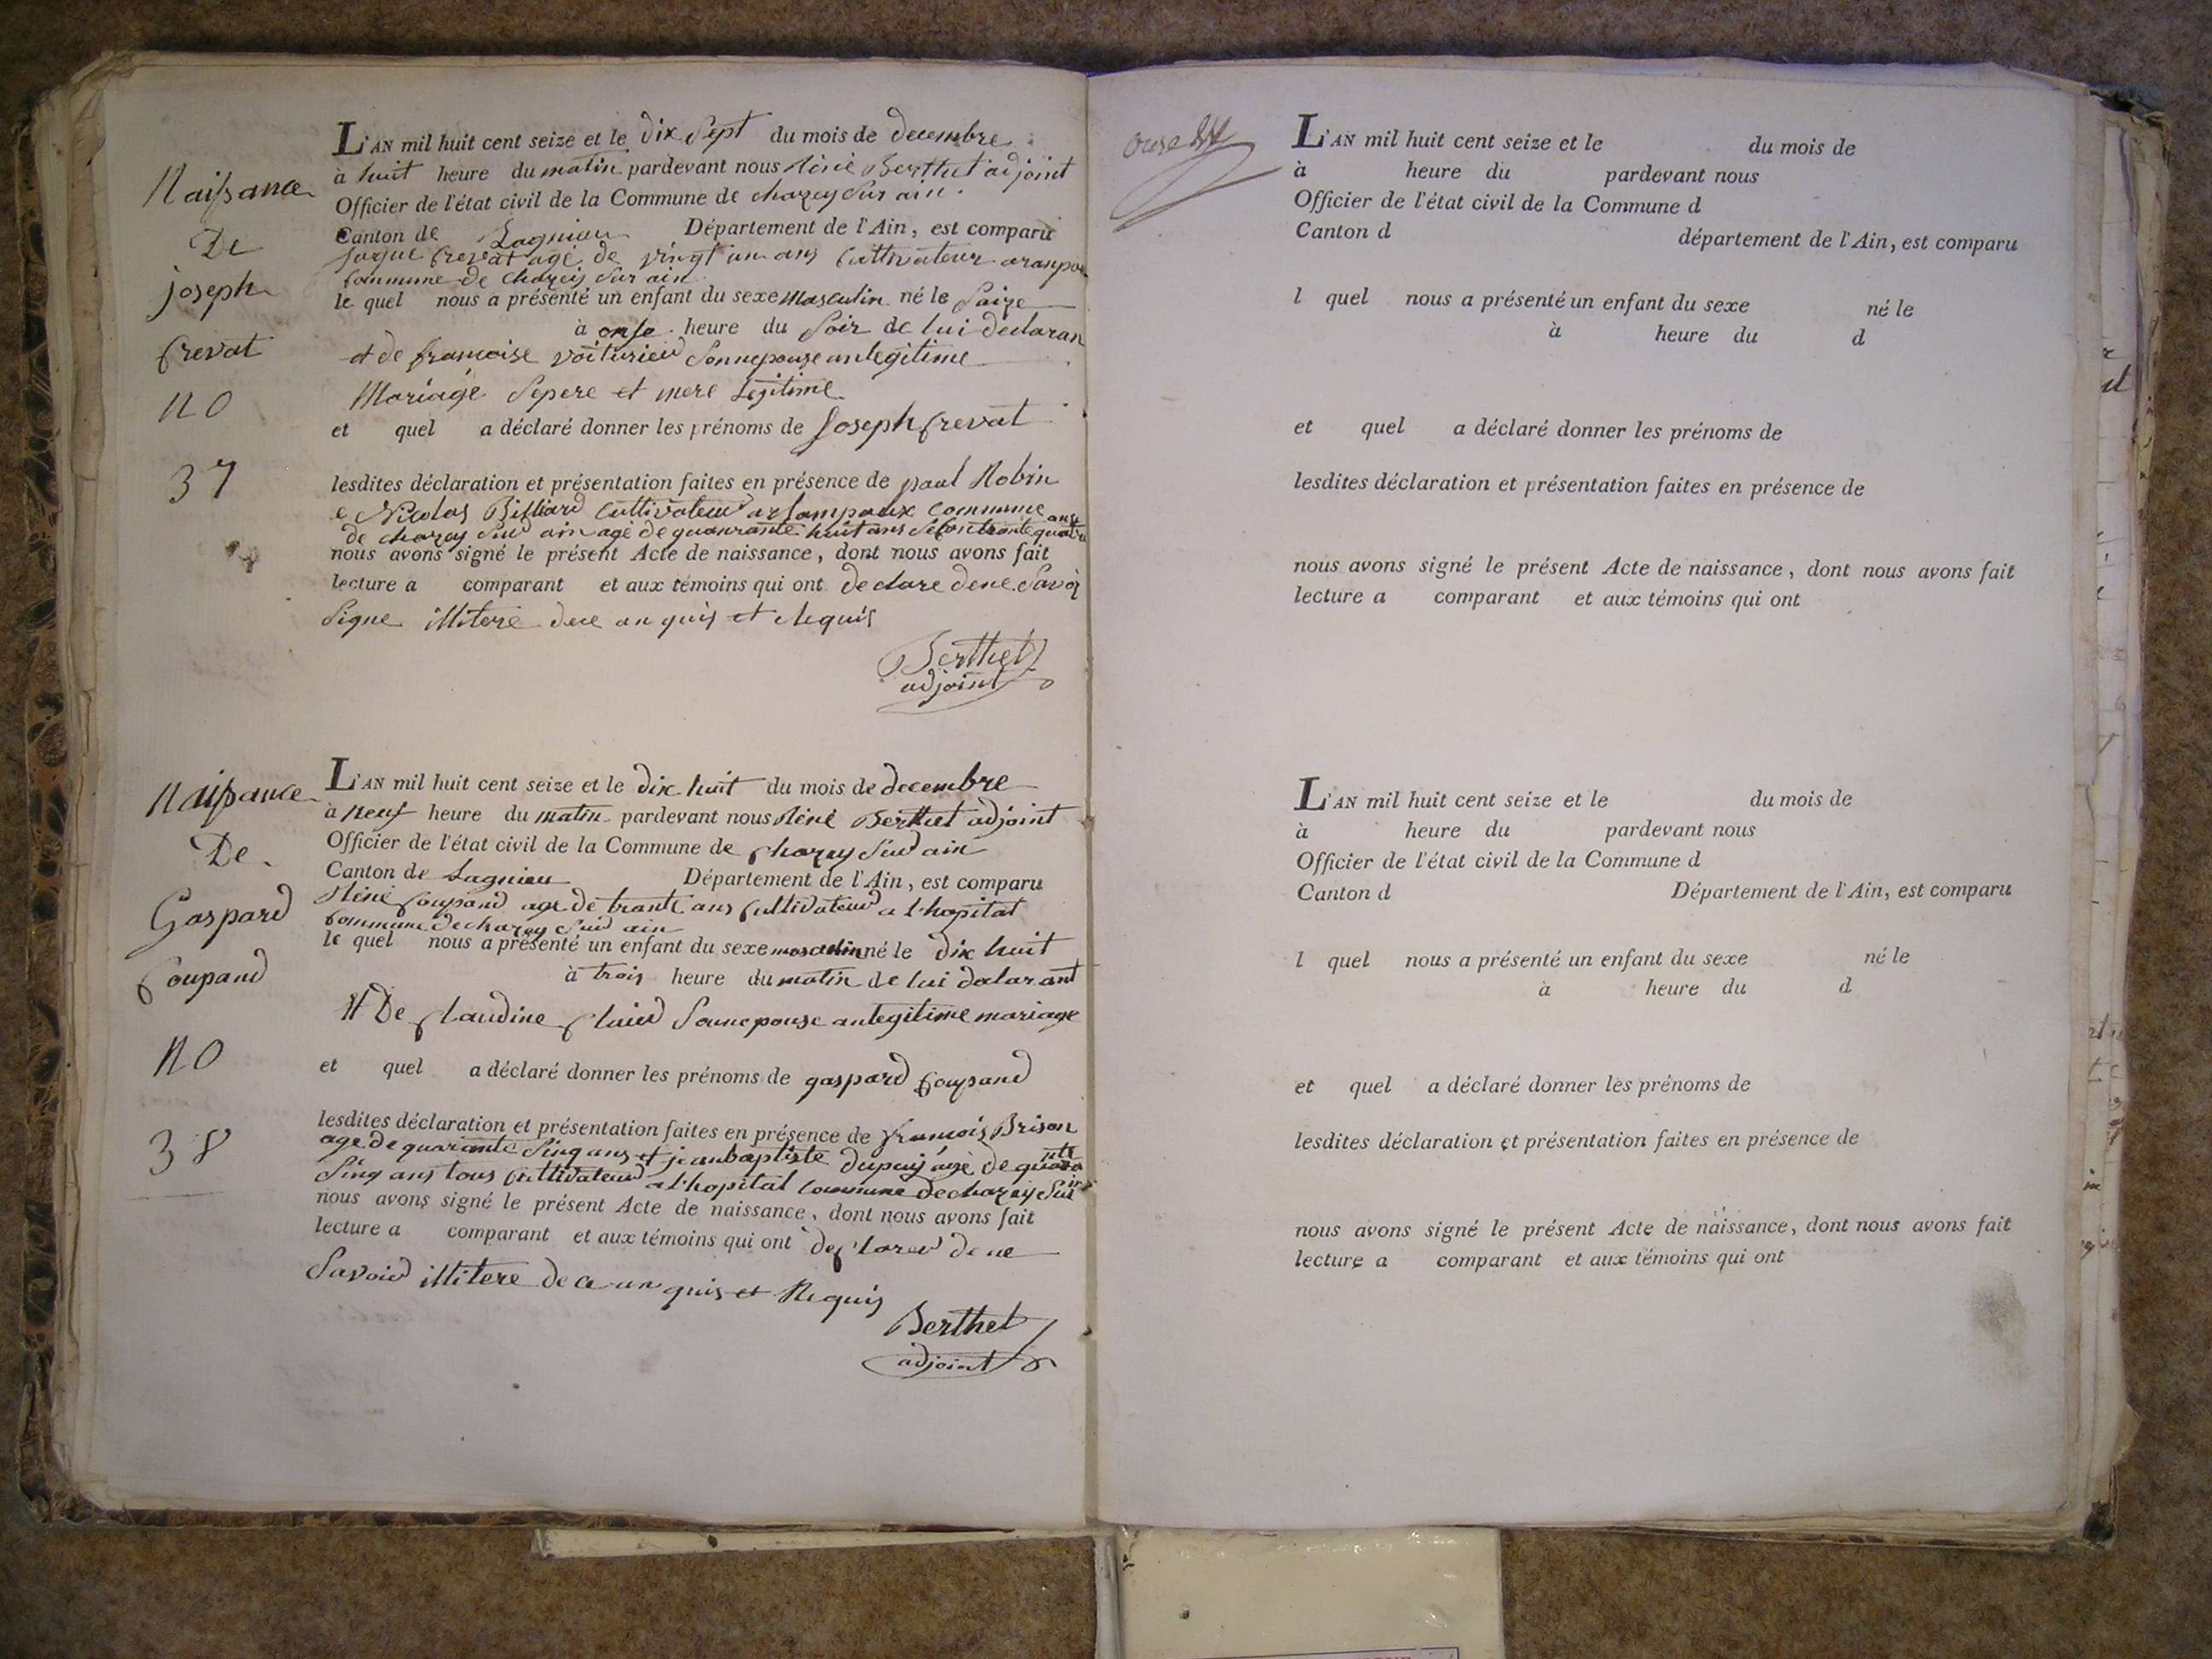 Naissance
De
joseph
Crevat
No
37
L'AN mil huit cent seize et le dix Sept du mois de decembre
à huit heure du matin pardevant nous Réné Berthet adjoint
Officier de l'état civil de la Commune de chazey Sur ain
Canton de Lagnieu Département de l'Ain, est comparu
Crevat agé de vingt un ans Cultivateur
Commune de chazey Sur ain
le quel nous a présenté un enfant du sexe masculin né le Saize
à onse heure du Soir de lui declaran
et de francoise voiturier Sonnepouse anlegitime
Mariage Sepere et mere Legitime
et quel a déclaré donner les prénoms de Joseph Crevat
lesdites déclaration et présentation faites en présence de paul Robin
e Nicolas Billiard Cultivateur commune
de chazey Sur ain agé de quanrante huit ans trante quatre ans
nous avons signé le présent Acte de naissance, dont nous avons fait
lecture a comparant et aux témoins qui ont declare dene Savoir
Signe illitere dece anquis et Requis
Berthet
adjoint
Naissance
De
Gaspard
Coupand
No
38
L'AN mil huit cent seize et le dix huit du mois de decembre
à neuf heure du matin pardevant nous Réné Berthet adjoint
Officier de l'état civil de la Commune de Chazey Sur ain
Canton de Lagnieu Département de l'Ain, est comparu
Réné Coupand age de trante ans Cultivateur a l'hopital
Commune de chazey Sur ain
le quel nous a présenté un enfant du sexe masculin né le dix huit
à trois heure du matin de lui dalarant
et De Claudine Clair Sounepouse anlegitime mariage
et quel a déclaré donner les prénoms de gaspard Coupand
lesdites déclaration et présentation faites en présence de francois Brison
age de quarante Sinq ans et jeanbaptiste dupuis agé de quarante
Sinq ans tous Cultivateur a l'hopital Commune de chazey Sur
nous avons signé le présent Acte de naissance, dont nous avons fait
lecture a comparant et aux témoins qui ont declarer de ne
Savoir illitere de ce anquis et Requis
Berthet
adjoint
L'AN mil huit cent seize et le du mois de
à heure du pardevant nous
Officier de l'état civil de la Commune d
Canton d département de l'Ain, est comparu
l quel nous a présenté un enfant du sexe né le
à heure du d
et quel a déclaré donner les prénoms de
lesdites déclaration et présentation faites en présence de
nous avons signé le présent Acte de naissance, dont nous avons fait
lecture a comparant et aux témoins qui ont
L'AN mil huit cent seize et le du mois de
à heure du pardevant nous
Officier de l'état civil de la Commune d
Canton d Département de l'Ain, est comparu
l quel nous a présenté un enfant du sexe né le
à heure du d
et quel a déclaré donner les prénoms de
lesdites déclaration et présentation faites en présence de
nous avons signé le présent Acte de naissance, dont nous avons fait
lecture a comparant et aux témoins qui ont